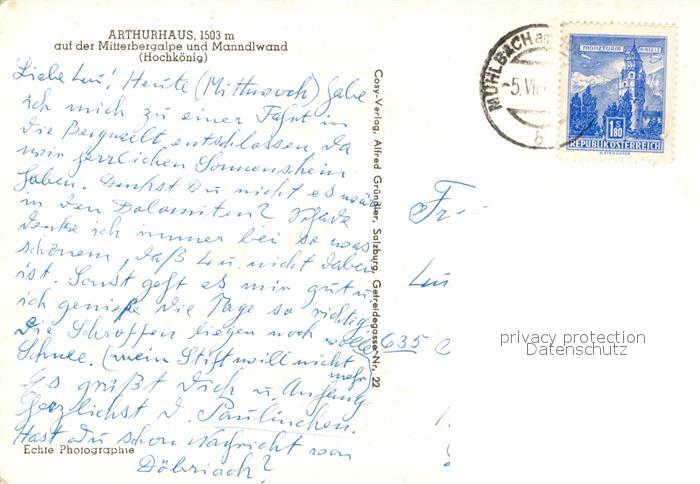 ARTHURHAUS, 1503 m
auf der Mitterbergalpe und Manndlwand
(Hochkönig)
Liebe Lu! Heute (Mittwoch) habe
ich mich zu einer Fahrt in
die Bergwelt entschlossen, da
wir herrlichen Sonnenschein
haben. Denkst Du nicht es wäre
in den Dolomiten? Schade
denke ich immer bei so was
schönem, daß Du nicht dabei
ist. Sonst geht es mir gut u.
ich genieße die Tage so richtig
Die Schroffen liegen noch voller
Schnee. (mein Stift will nicht
mehr)
Es grüßt Dich u. Anhang
Herzlichst d. Paulinchen.
Hast Du schon Nachricht von
Döbriach?
Echte Photographie
Cosy-Verlag, Alfred Gründler, Salzburg, Getreidegasse Nr. 22
MÜHLBACH am
-5. VII.
b
MÜNZTURM HALL i. T.
1.80 S
REPUBLIK ÖSTERREICH
Fr
635
privacy protection
Datenschutz